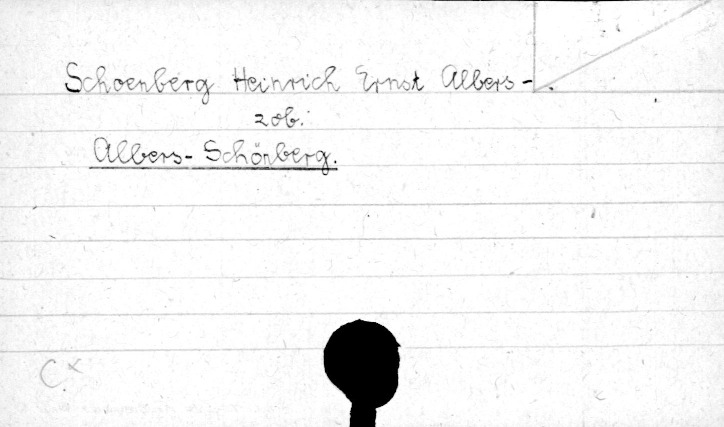 Schoenberg Heinrich Ernst Albers-.
zob:
Albers-Schönberg.
Cx